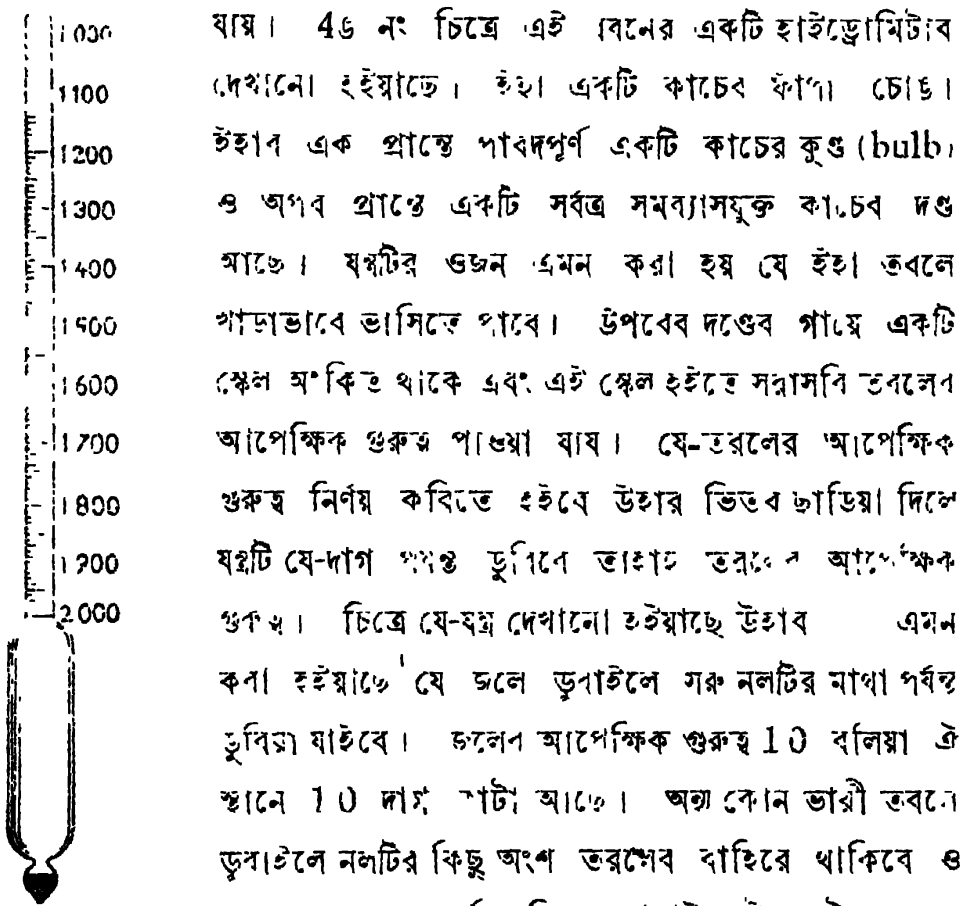 1000
1100
1200
1300
1400
1500
1600
1700
1800
1900
2000
যায়। 46 নং চিত্রে এই ধরনের একটি হাইড্রোমিটার
দেখানো হইয়াছে। ইহা একটি কাচের ফাঁপা চোঙ।
ইহার এক প্রান্তে পারদপূর্ণ একটি কাচের কুণ্ড (bulb)
ও অপর প্রান্তে একটি সর্বত্র সমব্যাসযুক্ত কাচের দণ্ড
আছে। যন্ত্রটির ওজন এমন করা হয় যে ইহা তরলে
খাড়াভাবে ভাসিতে পারে। উপরের দণ্ডের গায়ে একটি
স্কেল অংকিত থাকে এবং এই স্কেল হইতে সরাসরি তরলের
আপেক্ষিক গুরুত্ব পাওয়া যায়। যে-তরলের আপেক্ষিক
গুরুত্ব নির্ণয় করিতে হইবে উহার ভিতর ছাড়িয়া দিলে
যন্ত্রটি যে-দাগ পর্যন্ত ডুবিবে তাহাই তরলের আপেক্ষিক
গুরুত্ব। চিত্রে যে-যন্ত্র দেখানো হইয়াছে উহার এমন
করা হইয়াছে যে জলে ডুবাইলে সরু নলটির মাথা পর্যন্ত
ডুবিয়া যাইবে। জলের আপেক্ষিক গুরুত্ব 1 0 বলিয়া ঐ
স্থানে 1 0 দাগ কাটা আছে। অন্য কোন ভারী তরলে
ডুবাইলে নলটির কিছু অংশ তরলের বাহিরে থাকিবে ও